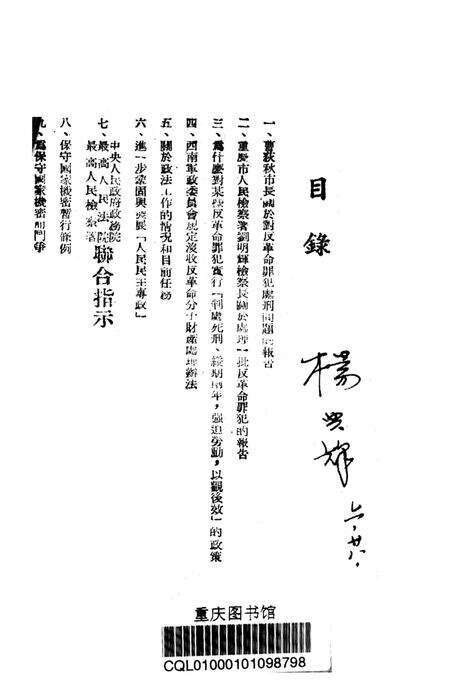 目錄
一、曹荻秋市長關於對反革命罪犯處刑問題的報告
二、重慶市人民檢察署劉明輝檢察長關於處理一批反革命罪犯的報告
三、爲什麼對某些反革命罪犯實行「判處死刑、緩期兩年，強迫勞動，以觀後效」的政策
四、西南軍政委員會規定沒收反革命分子財產處理辦法
五、關於政法工作的情况和目前任務
六、進一步鞏固與發展「人民民主專政」
七、中央人民政府政務院
最高人民法院
最高人民檢察署
聯合指示
八、保守國家機密暫行條例
九、爲保守國家機密而鬥爭
楊
輝
六、廿八、
重庆图书馆
CQL01000101098798